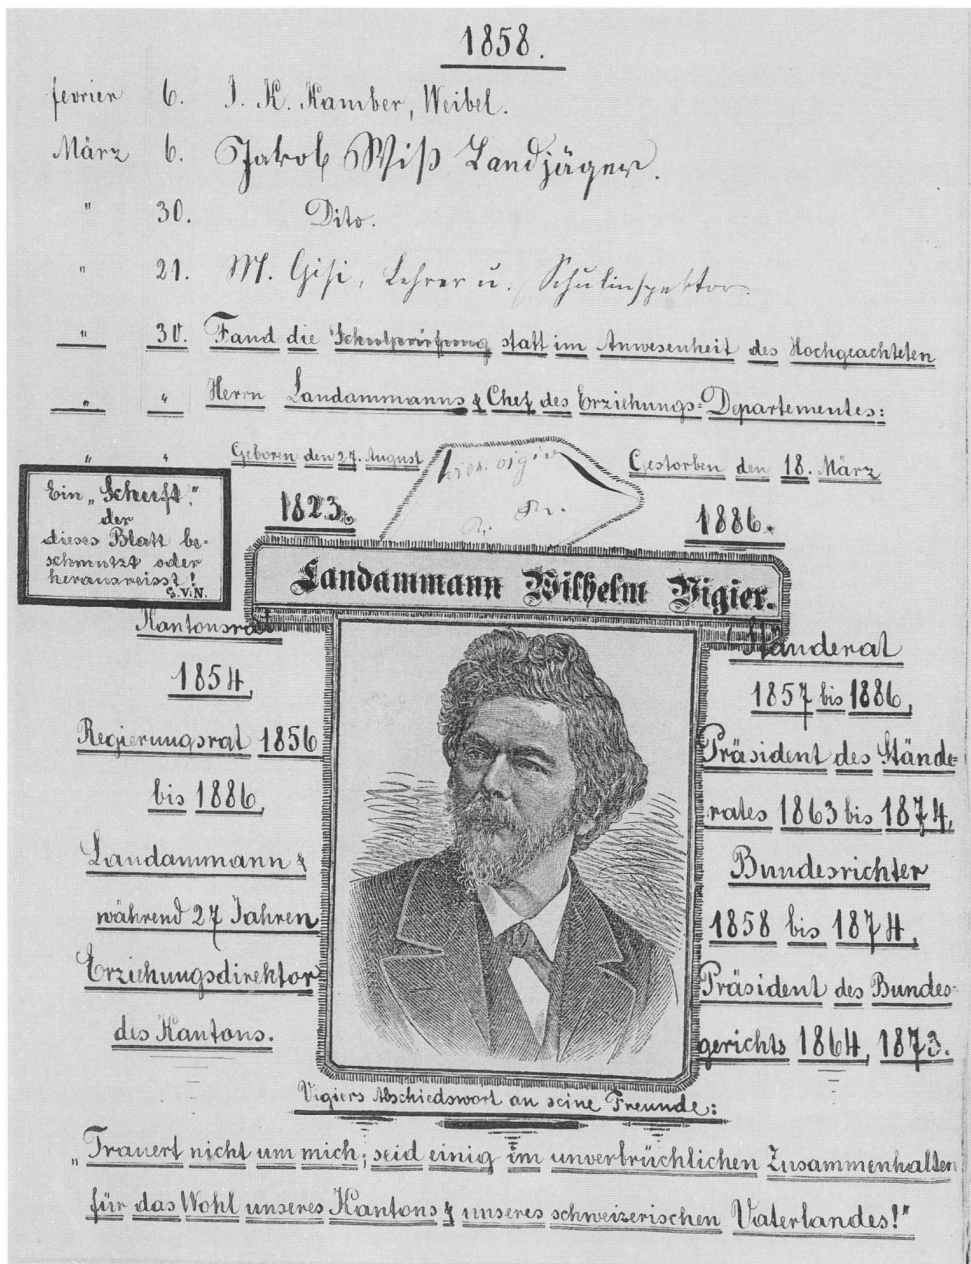 1858.
fevrier 6. J. K. Kamber, Weibel.
März 6. Jakob Wiß Landjäger.
" 30. Dito.
" 21. M. Gisi, Lehrer u. Schulinspektor.
" 30. Fand die Schulprüfung statt im Anwesenheit des Hochgeachteten
" " Herrn Landammanns & Chef des Erziehungs-Departementes:
" " Geboren den 27. August
1823.
Gestorben den 18. März
1886.
Ein „Schuft"
der
dieses Blatt be-
schmutzt oder
herausreisst!
G.V.N.
Landammann Wilhelm Vigier.
Kantonsrat
1854,
Regierungsrat 1856
bis 1886,
Landammann &
während 27 Jahren
Erziehungsdirektor
des Kantons.
Ständerat
1857 bis 1886,
Präsident des Stände-
rates 1863 bis 1874,
Bundesrichter
1858 bis 1874,
Präsident des Bundes-
gerichts 1864, 1873.
Vigiers Abschiedswort an seine Freunde:
„Trauert nicht um mich; seid einig im unverbrüchlichen Zusammenhalten
für das Wohl unseres Kantons & unseres schweizerischen Vaterlandes!"